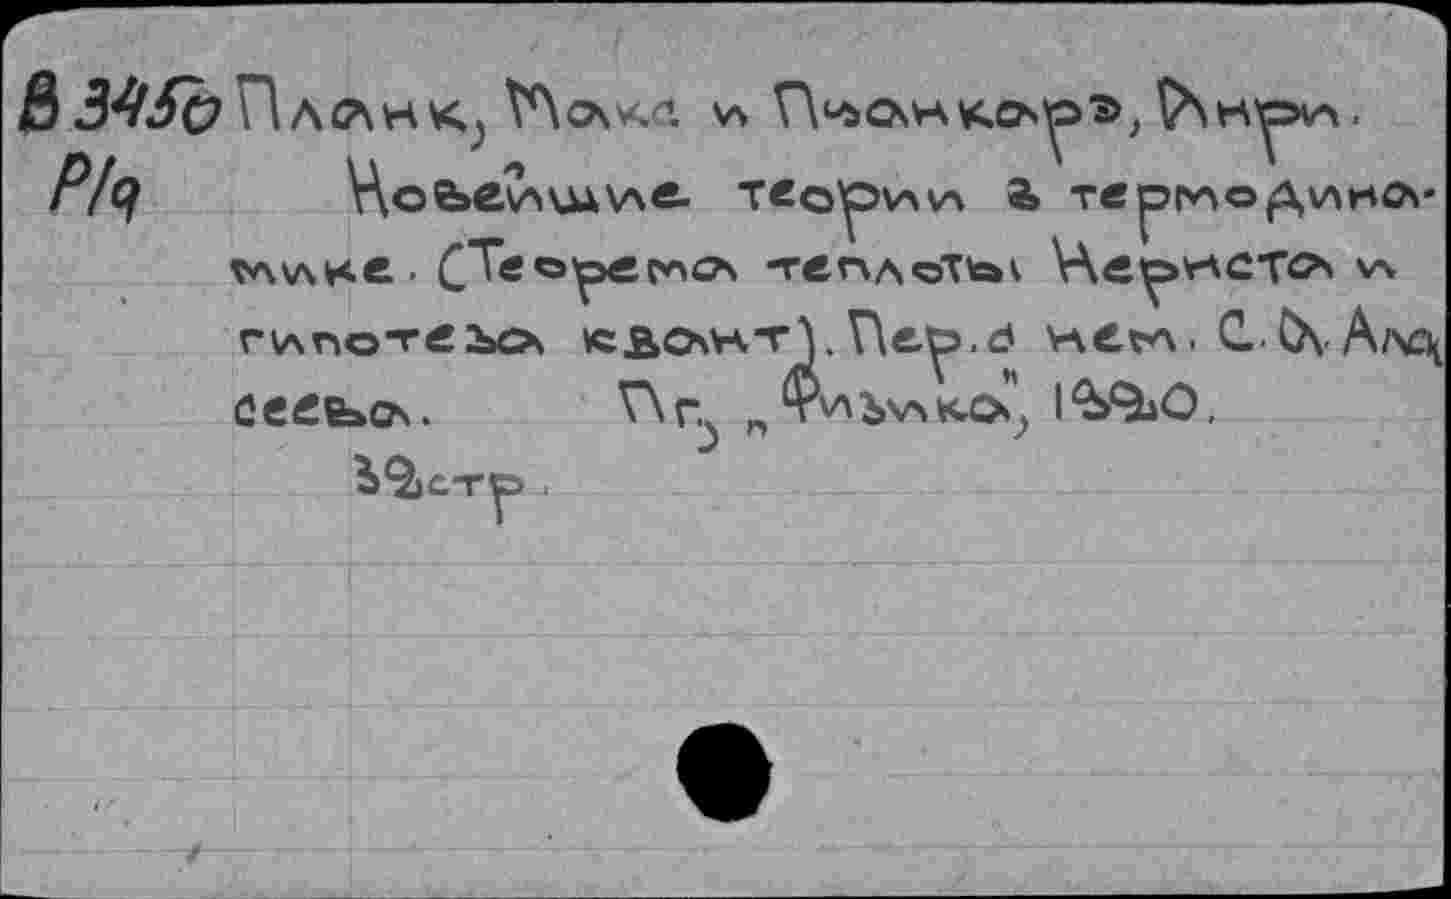 В 3450 Планк, Макс и Пуанкарэ, Анри.
P/9 Новейшие теории в термодина-
мике. (Теорема теплоты Нернста и
гипотеза квант). Пер. с нем. С. А. Алек
сеева. Пг., "Физика", 1920.
32 стр.